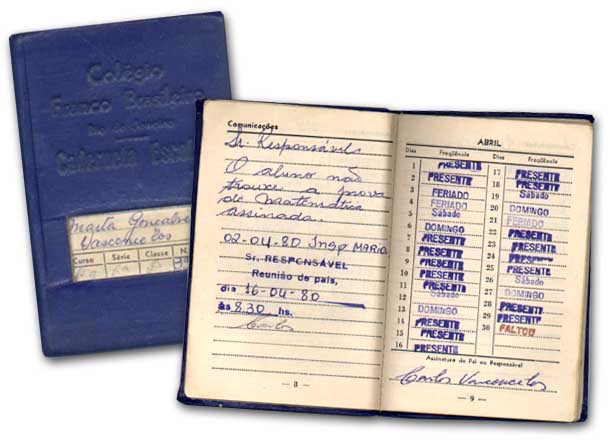 Colégio
Franco Brasileiro
Caderneta Escolar
Marta Gonçalves
Vasconcelos
Curso Série Classe N.
Comunicações
Sr. Responsável
O aluno não
trouxe a prova
de matemática
assinada.
02-04-80 Insp MARIO
Sr. RESPONSÁVEL
Reunião de pais,
dia 16-04-80
às 8.30 hs.
Carlos
— 8 —
ABRIL
Dias Freqüência Dias Freqüência
1 PRESENTE 17 PRESENTE
2 PRESENTE 18 PRESENTE
3 FERIADO 19 Sábado
4 FERIADO 20 DOMINGO
5 Sábado 21 FERIADO
6 DOMINGO 22 PRESENTE
7 PRESENTE 23 PRESENTE
8 PRESENTE 24 PRESENTE
9 PRESENTE 25 PRESENTE
10 PRESENTE 26 Sábado
11 PRESENTE 27 DOMINGO
12 Sábado 28 PRESENTE
13 DOMINGO 29 PRESENTE
14 PRESENTE 30 FALTOU
15 PRESENTE
16 PRESENTE
Assinatura do Pai ou Responsável
Carlos Vasconcelos
— 9 —